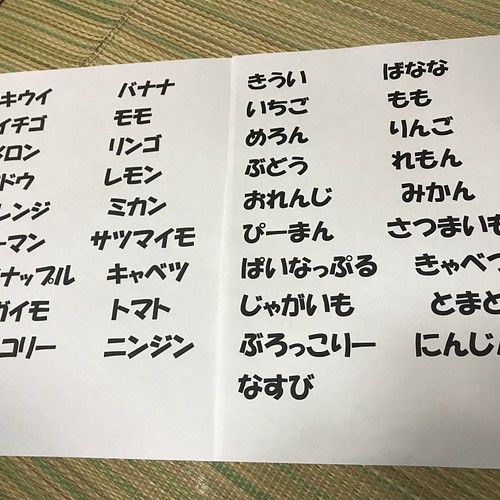 キウイ
イチゴ
メロン
ドウ
レンジ
ーマン
ナップル
ガイモ
コリー
バナナ
モモ
リンゴ
レモン
ミカン
サツマイモ
キャベツ
トマト
ニンジン
きうい
いちご
めろん
ぶどう
おれんじ
ぴーまん
ぱいなっぷる
じゃがいも
ぶろっこりー
なすび
ばなな
もも
りんご
れもん
みかん
さつまいも
きゃべつ
とまと
にんじん